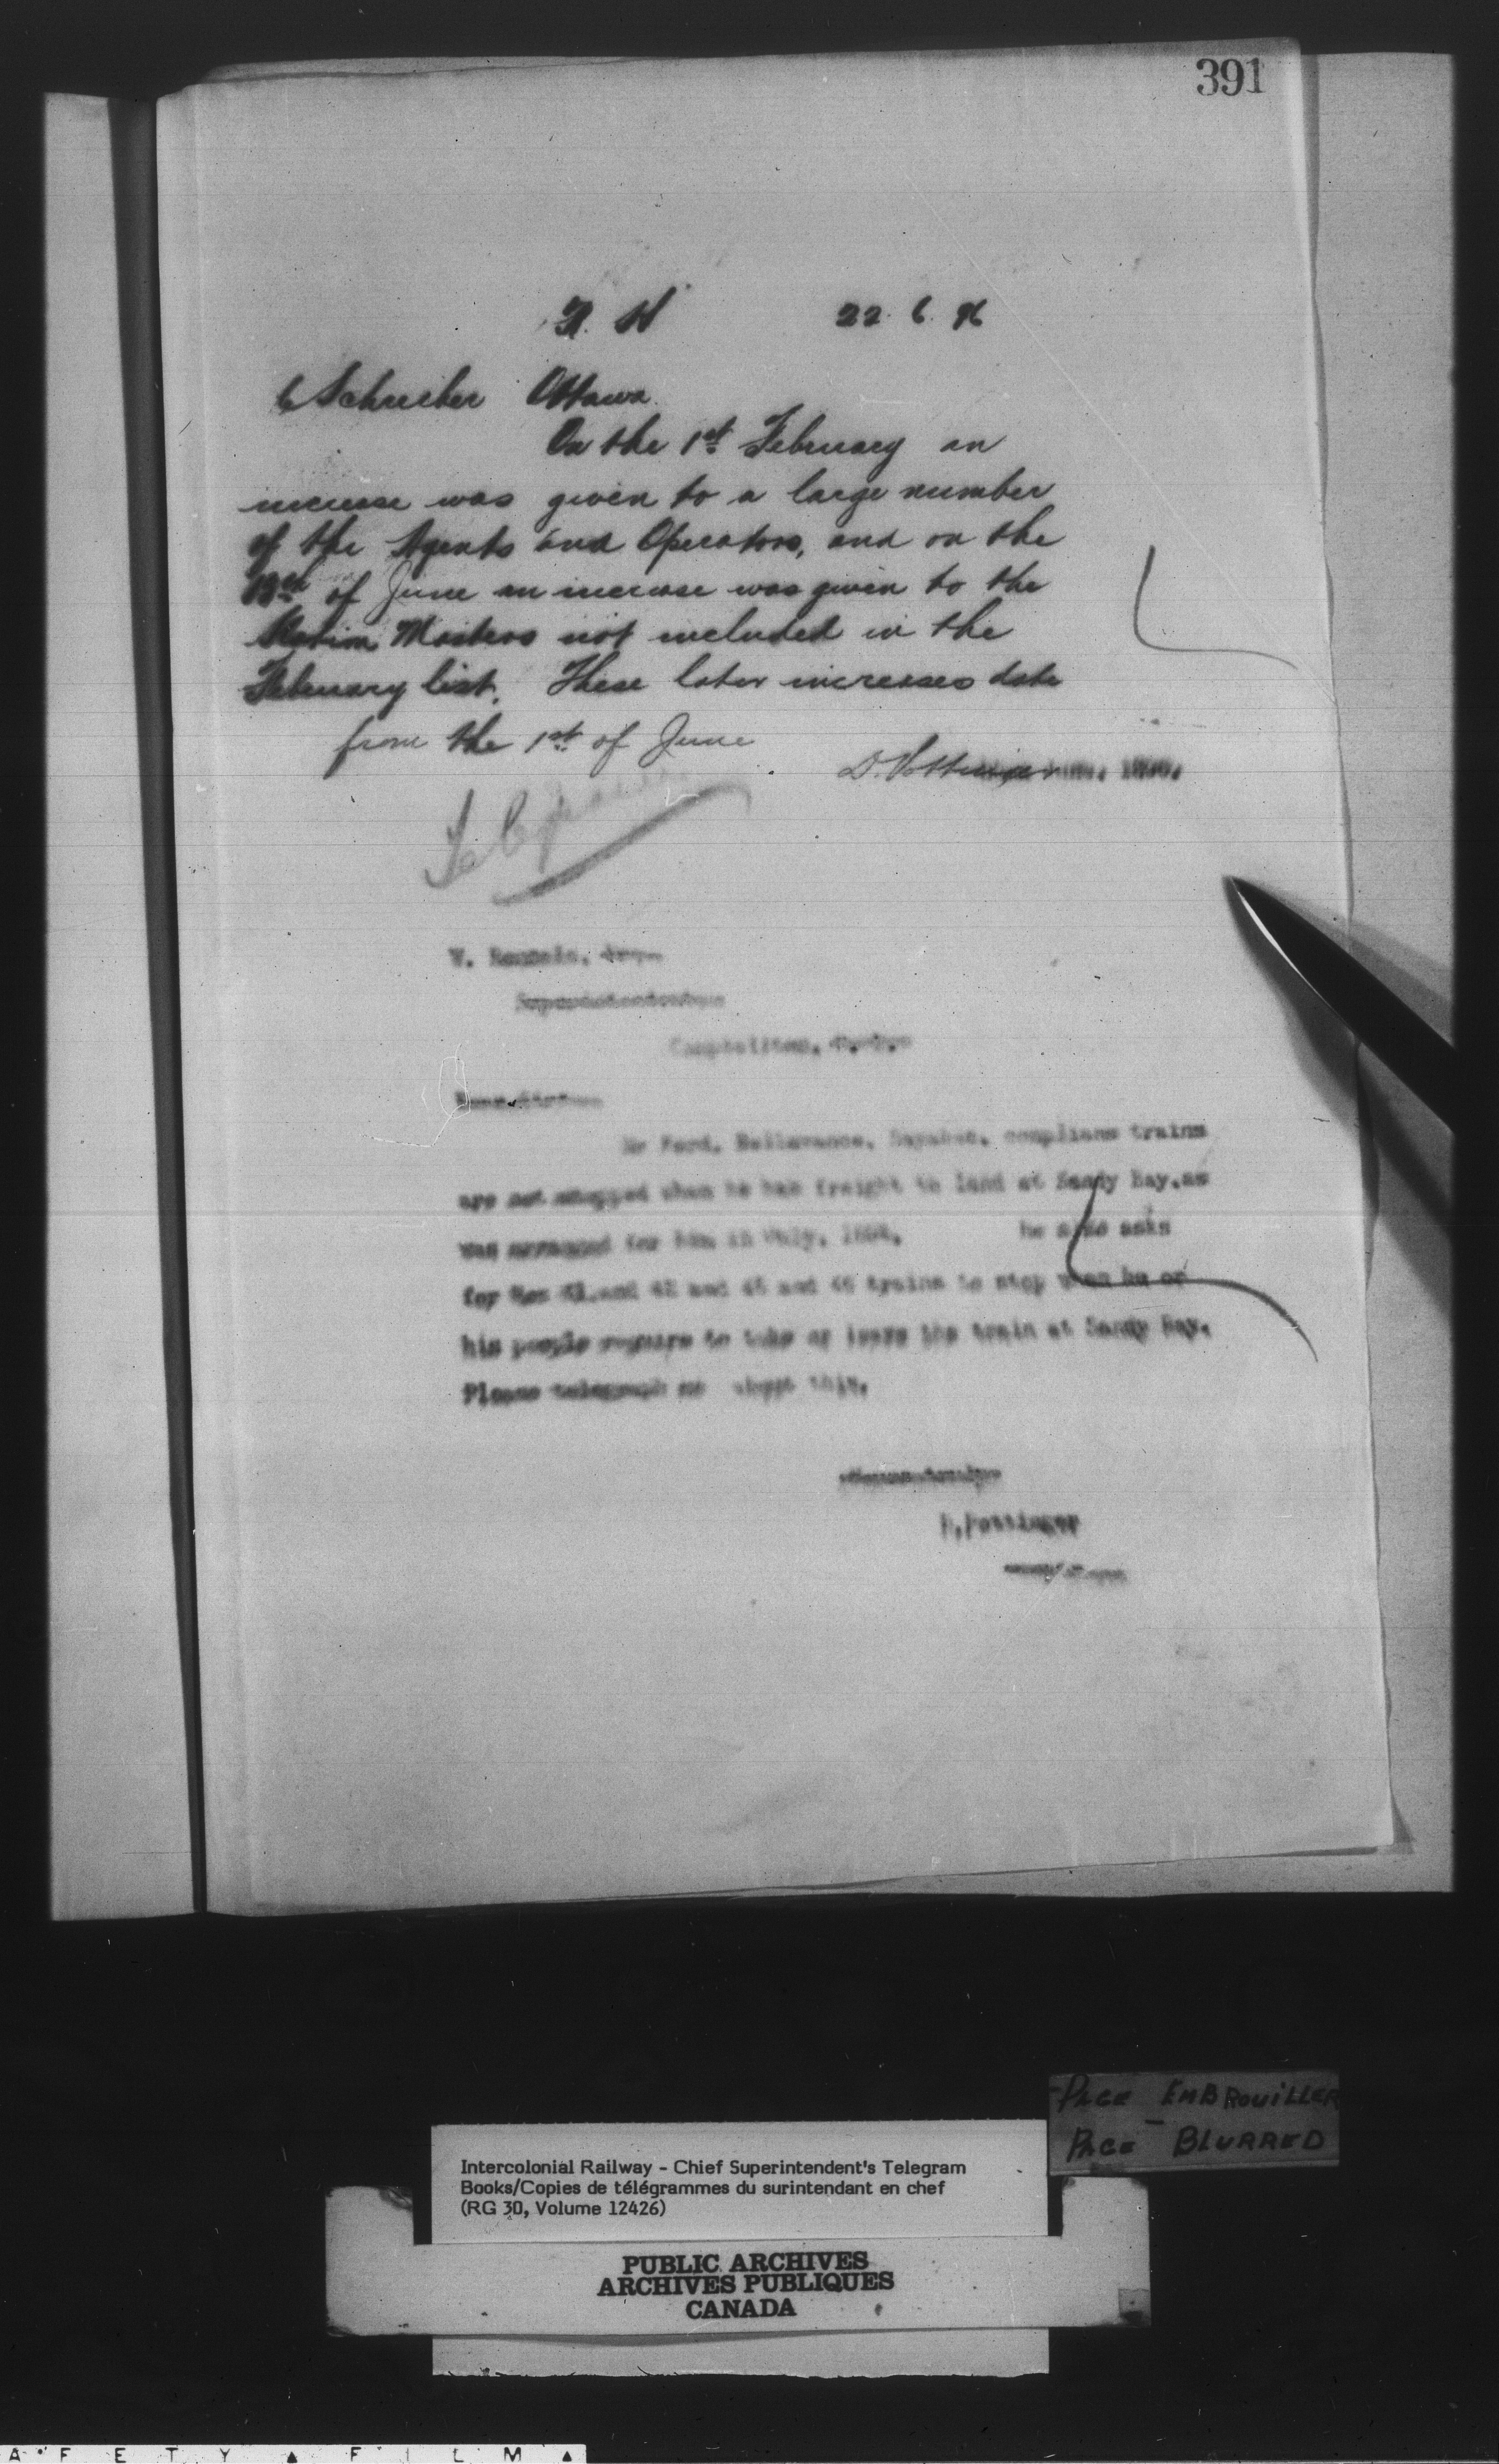 391
22 6 96
C Schreiber Ottawa
On the 1st February an
increase was given to a large number
of the Agents and Operators, and on the
of June an increase was given to the
Station Masters not included in the
February list. These later increases date
from the 1st of June
D. Pottinger
W.
Superintendent
Campbellton,
Dear Sir
Mr Ferd. Bellavance, Sayabec, complians trains
are not stopped when he has freight to land at Sandy Bay, as
was arranged for him in July, he also asks
for Nos and and and trains to stop when he or
his people require to take or leave the train at Sandy Bay.
Please telegraph me about this.
D. Pottinger
PAGE EMBROUILLER
PAGE BLURRED
Intercolonial Railway - Chief Superintendent's Telegram
Books/Copies de télégrammes du surintendant en chef
(RG 30, Volume 12426)
PUBLIC ARCHIVES
ARCHIVES PUBLIQUES
CANADA
A F E T Y ▲ F I L M ▲